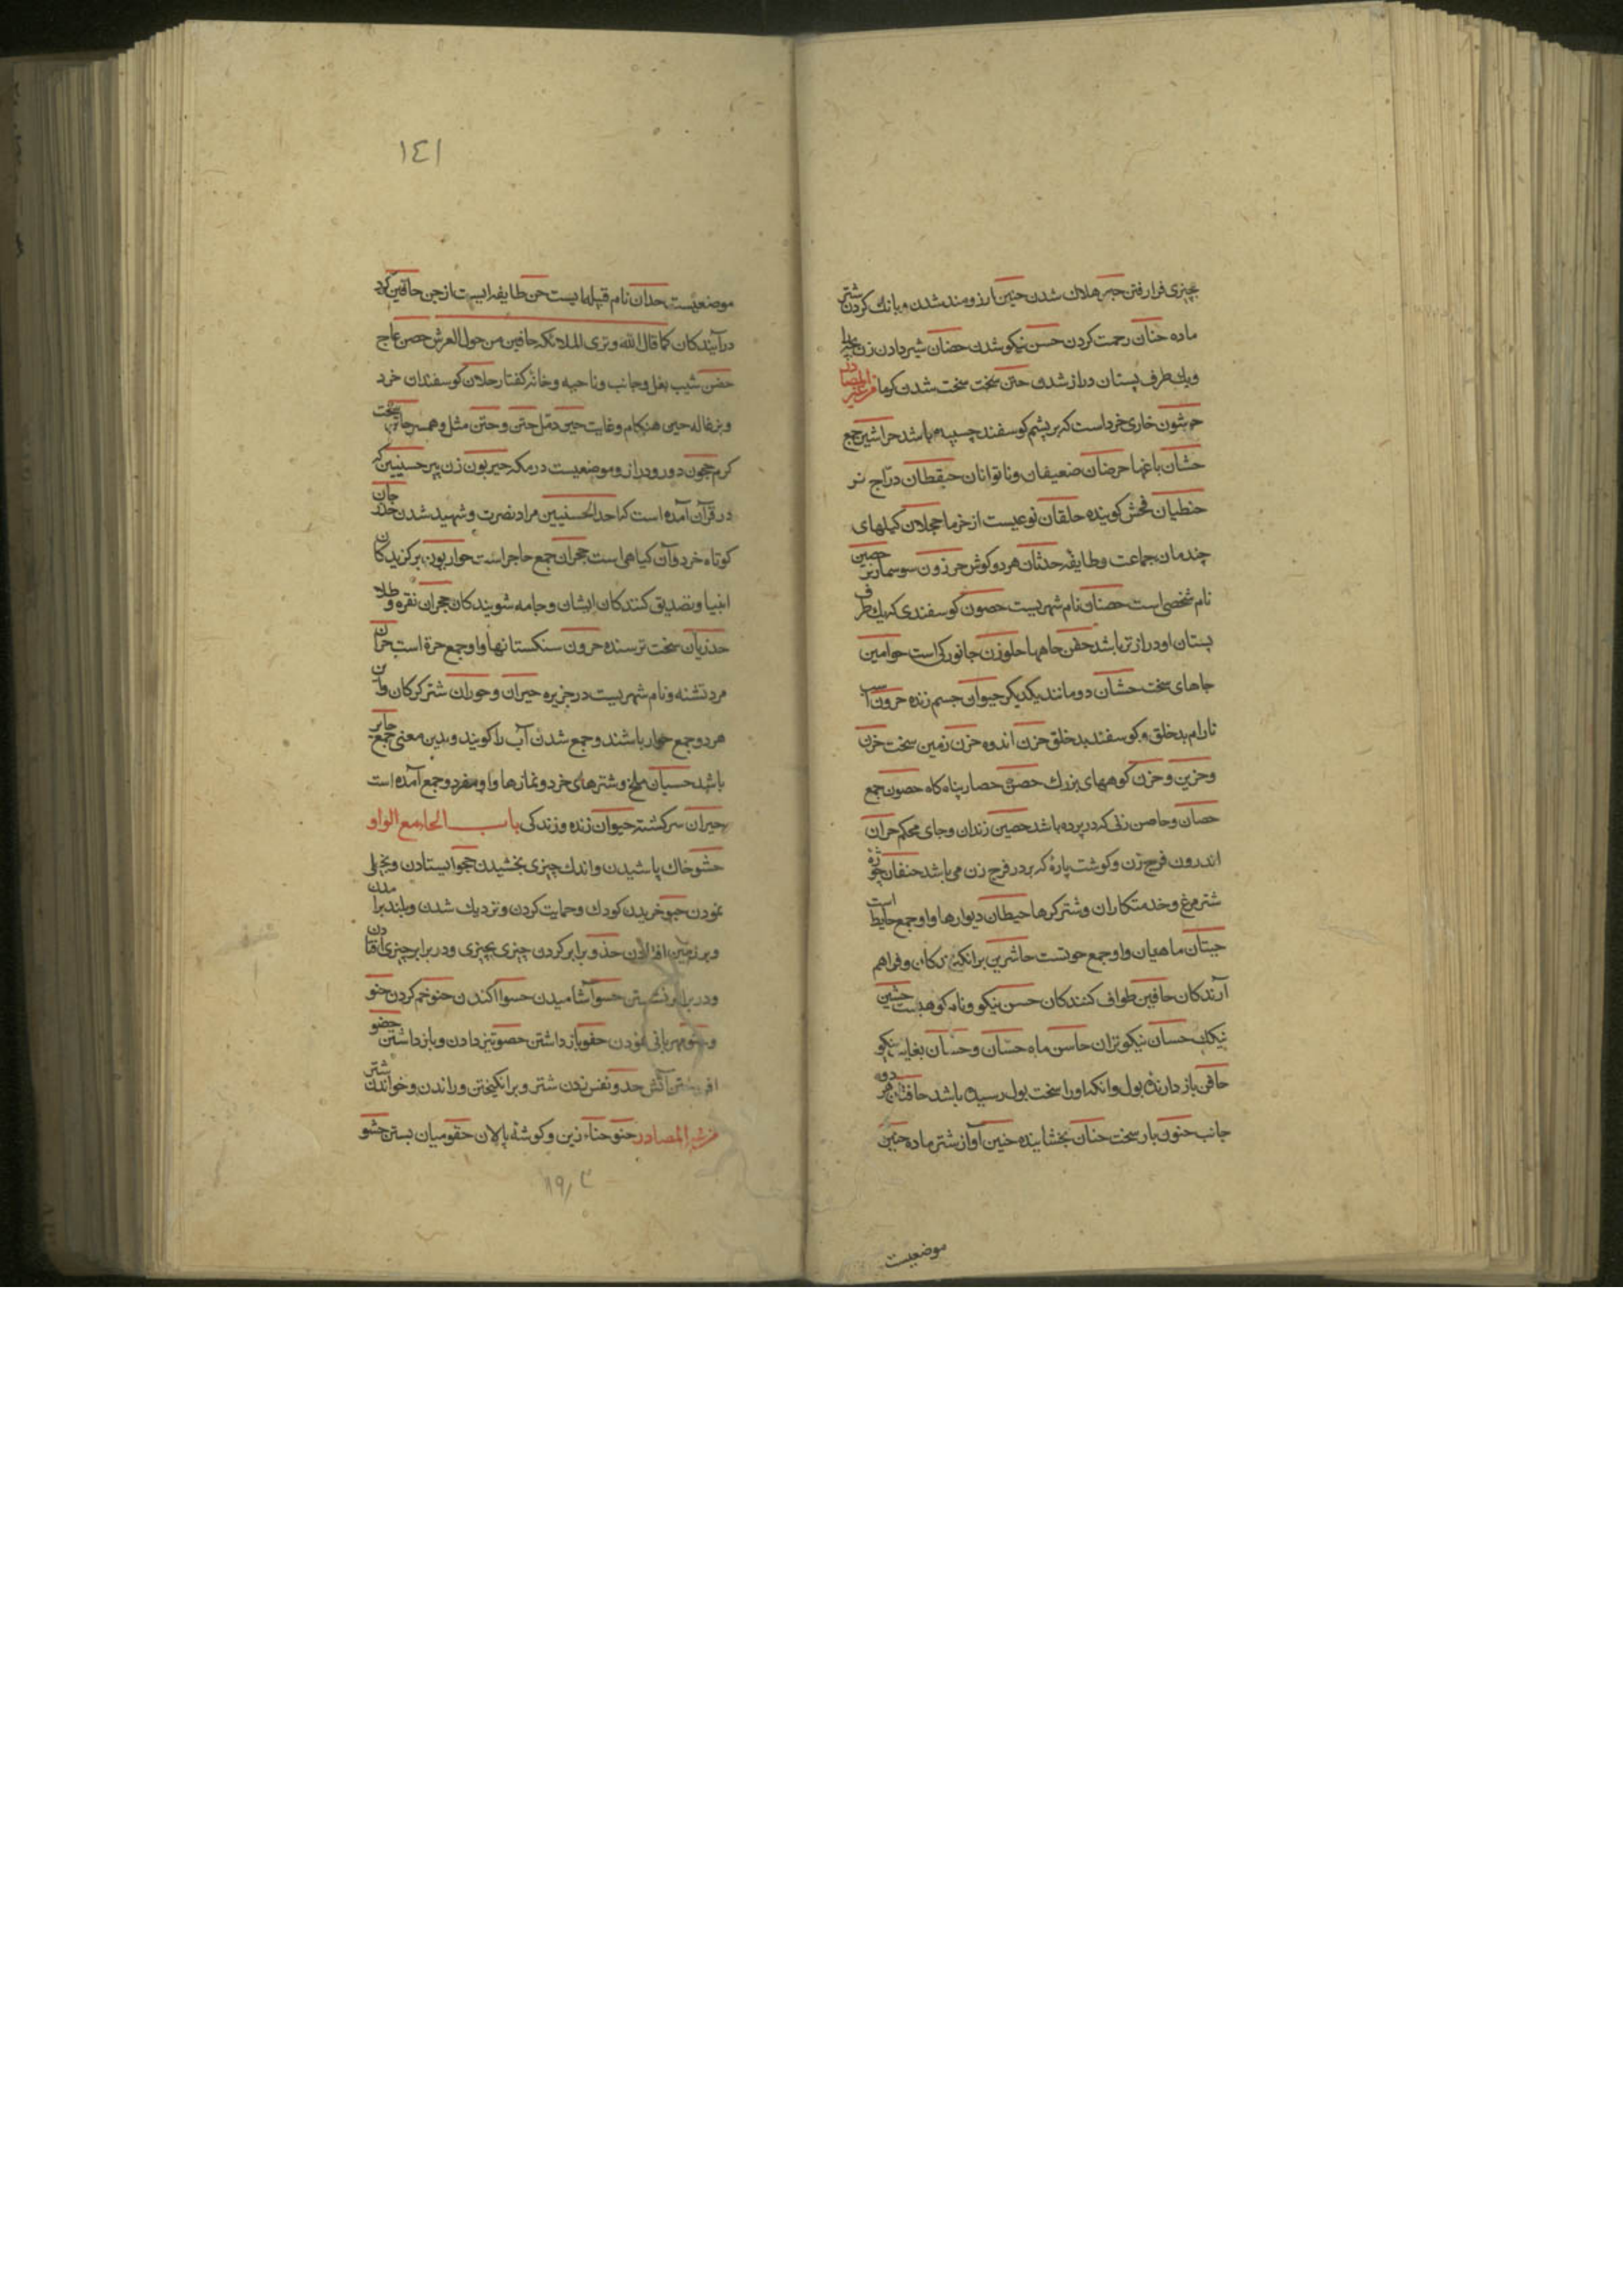 چیزی فرا رفتن هلاك شدن حنین ارزومند شدن و بانك کردن شتر
ماده حنان رحمت کردن حسن نیکو شدن حضان شیر دادن زن بچه را
ویك طرف پستان دراز شدن حتن سخت سخت شدن کرما من غیر المصادر
حرشون خاری خرد است که بر پشم کوسفند چسپیده باشد حراشین جمع
حشان باغها حرضان ضعیفان و ناتوانان حیقطان درّاج نر
حنظیان فحش کوینده حلقان نوعیست از خرما حجلان کبکهای
چندمان جماعت و طایفه حدثان هر دو کوش حرذون سوسمار نر حصین
نام شخصی است حصنان نام شهریست حضون کوسفندی که یك طرف
پستان او دراز تر باشد حفن جاهها حلزون جانورکی است حوامین
جاهای سخت حشان دو مانند یکدیکر حیوان جسم زنده حرون اسب
نارام بد خلق و کوسفند بد خلق حزن اندوه حزن زمین سخت حزن
و حزین و حزن کوههای بزرك حصن حصار پناه کاه حصون جمع
حصان و حاصن زنی که در پرده باشد حصین زندان و جای محکم حران
اندرون فرج زن و کوشت پارهٔ که بر در فرج زن می باشد حنفان چوزهٔ
شتر مرغ و خدمتکاران و شتر کرها حیطان دیوارها و او جمع حایط است
حیتان ماهیان و او جمع حوتست حاشرین بر انکیزندکان و فراهم
آرندکان حافین طواف کنندکان حسن نیکو و نام کوهیست حشین
نیکك حسان نیکوتران حاسن ماه حسّان و حسّان بغایت نیکو
حاقن باز دارنده بول و انکه او را سخت بول رسیده باشد حافتان هر دو
جانب حنون بار سخت حنان بخشاینده حنین آواز شتر ماده حنین
موضعیست
١٤١
موضعیست حدان نام قبیله ایست حن طایفه ایست از جن حافین کرد
درآیندکان کما قال الله و تری الملائکه حافین من حول العرش حضن عاج
حضن شیب بغل و جانب و ناحیه و خانهٔ کفتار حلان کوسفندان خرد
و بزغاله حین هنکام و غایت حین دمل حتن و حتن مثل و همسر حاتن سخت
کرم حجون دور و دراز و موضعیست در مکه حیزبون زن پیر حسنیین که
در قرآن آمده است که احد الحسنیین مراد نصرت و شهید شدن حذان
کوتاه خرد و آن کیاهی است حجران جمع حاجر است حواریون برکزیدکان
انبیا و تصدیق کنندکان ایشان و جامه شویندکان حجران نقره و طلا
حذریان سخت ترسنده حرون سنکستانها و او جمع حرة است حران
مرد تشنه و نام شهریست در جزیره حیران و حوران شتر کرکان و آن
هر دو جمع حوار باشند و جمع شدن آب را کویند و بدین معنی جمع حایر
باشد حسبان ملخ و شترهای خرد و نمازها و او مفرد و جمع آمده است
حیران سرکشته حیوان زنده و زندکی باب الحاء مع الواو
حشو خاك پاشیدن و اندك چیزی بخشیدن حجو ایستادن و بخیلی
نمودن حبو خزیدن کودك و حمایت کردن و نزدیك شدن و بلند برامدن
و بر زمین افتادن حذو برابر کردن چیزی بچیزی و در برابر چیزی افتادن
و در برابر نشستن حسو آشامیدن حسو اکندن حنو خم کردن حنو
و حنو مهربانی نمودن حقو باز داشتن حصو تیز دادن و باز داشتن حضو
افروختن آتش حدو نفس زدن شتر و بر انکیختن و راندن و خواندن شتر
من غیر المصادر حنو حناء زین و کوشهٔ پالان حقو میان بستن حشو